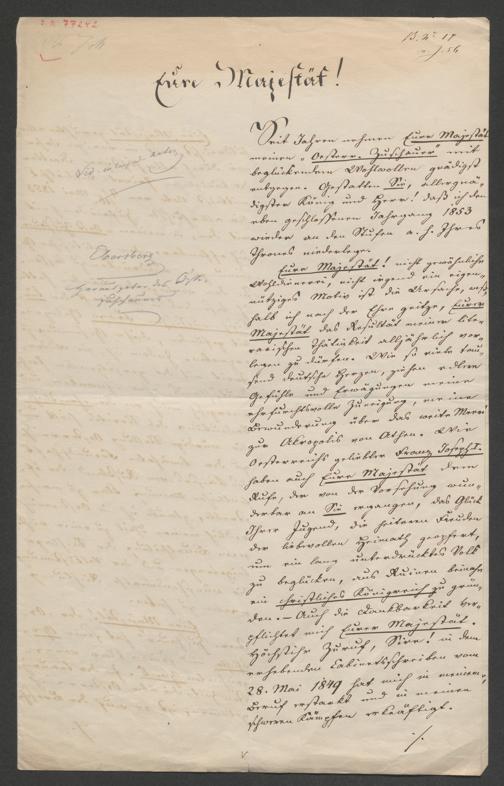 77242
B. N. 17
Eure Majestät!
Seit Jahren nehmen Eure Majestät
meinen „Oesterr. Zuschauer“ mit
beglückendem Wohlwollen gnädigst
entgegen. Gestatten Sie, allergnä-
digster König und Herr! daß ich den
eben geschlossenen Jahrgang 1853
wieder an den Stufen a. h. Ihres
Thrones niederlege.
Eure Majestät! nicht gewöhnliche
Wohldienerei, nicht irgend ein eigen-
nütziges Motiv ist die Ursache, weß-
halb ich nach der Ehre geitze, Eurer
Majestät das Resultat meiner lite-
rarischen Thätigkeit alljährlich vor-
legen zu dürfen. Wie so viele tau-
send deutsche Herzen, ziehen edlere
Gefühle und Erwägungen meine
ehrfurchtsvolle Zuneigung, meine
Bewunderung über das weite Meer
zur Akropolis von Athen. Wie
Oesterreichs geliebter Franz Joseph I.
haben auch Eure Majestät dem
Rufe, der von der Vorsehung wun-
derbar an Sie ergangen, das Glück
Ihrer Jugend, die heiteren Freuden
der liebevollen Heimath geopfert,
um ein lang unterdrücktes Volk
zu beglücken, aus Ruinen beinahe
ein christliches Königreich zu grün-
den. — Auch die Dankbarkeit ver-
pflichtet mich Eurer Majestät.
Höchstihr Zuruf, Sire! in dem
erhebenden Cabinetsschreiben vom
28. Mai 1849 hat mich in meinem
Beruf erstarkt und in meinen
schweren Kämpfen gekräftigt.
./.
Ebersberg
Herausgeber des Östr.
Zuschauers